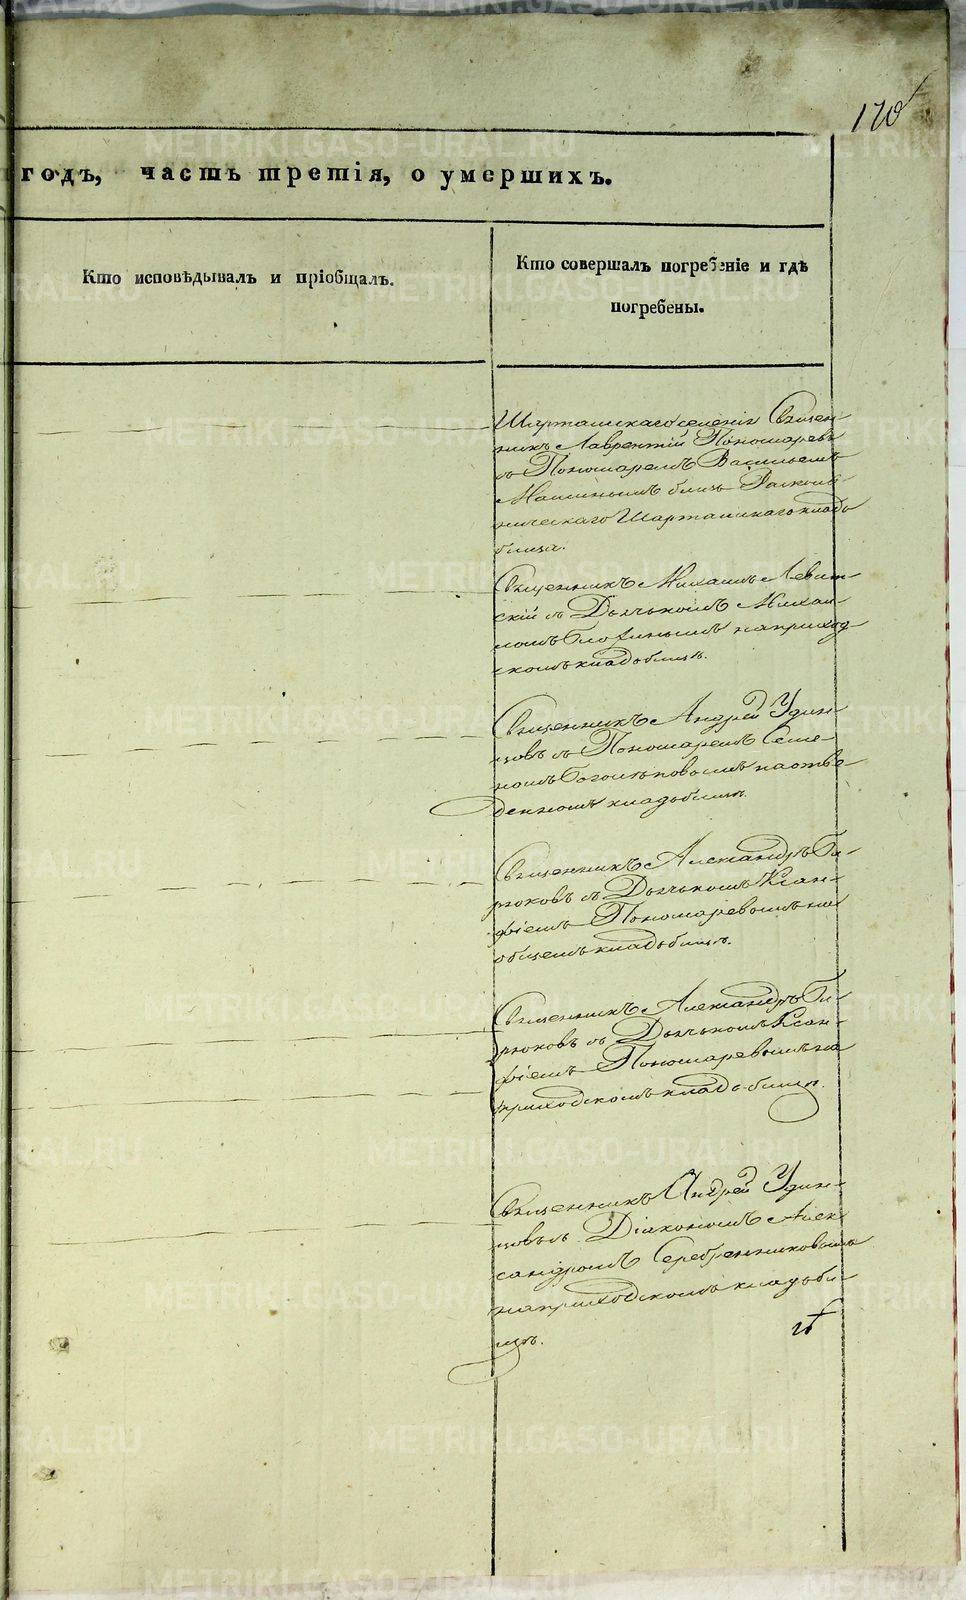 170
годъ, часть третія, о умершихъ.
Кто исповѣдывалъ и пріобщалъ.
Кто совершалъ погребеніе и гдѣ
погребены.
Шарташскаго селенія Священ-
никъ Лаврентій Пономаревъ
съ Пономаремъ Васильемъ
близь Расколь-
ническаго Шарташскаго кладъ
бища.
Священникъ Михаилъ Левит-
скій съ Дьячькомъ Михаи-
ломъ наприход-
скомъ кладъбищѣ.
Священникъ Андрей Удин-
цовъ съ Пономаремъ Семе-
номъ Боголѣповымъ наотве-
денномъ кладьбищѣ.
Священникъ Александръ Би-
рюковъ съ Дьячькомъ Ксан-
фіемъ Пономаревымъ на
общемъ кладьбищѣ.
Священникъ Александръ Би-
рюковъ съ Дьячькомъ Ксан-
фіемъ Пономаревымъ на
приходскомъ кладь-бищѣ.
Священникъ Андрей Удин-
цовъ съ Діакономъ Алек-
сандромъ Серебренниковымъ
наприходскомъ кладьби-
щѣ.
METRIKI.GASO-URAL.RU